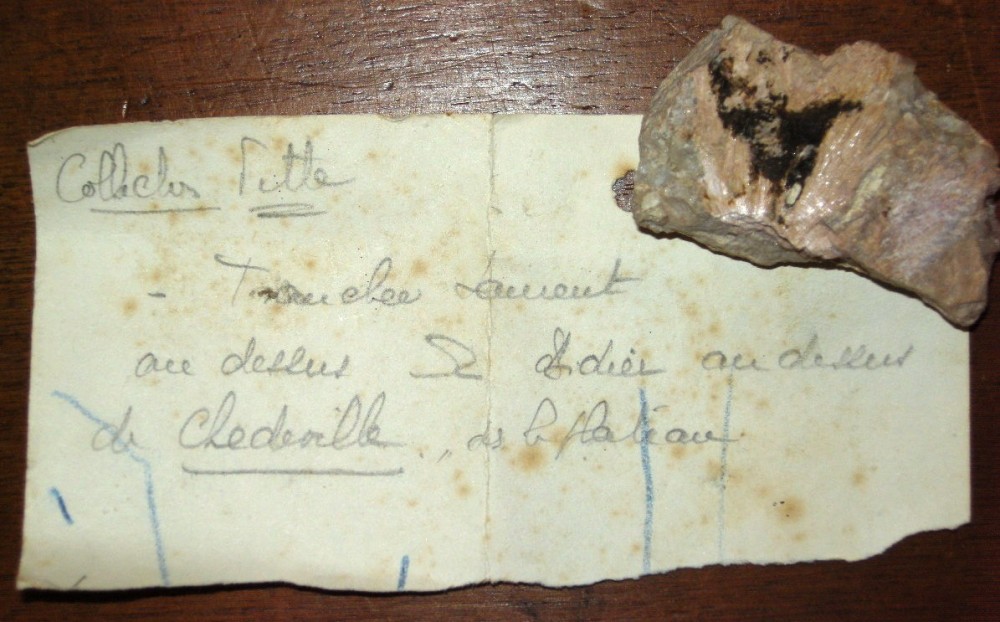 Collection
- Tranchée
au dessus St Didier au dessus
de Chedeville, ds le plateau